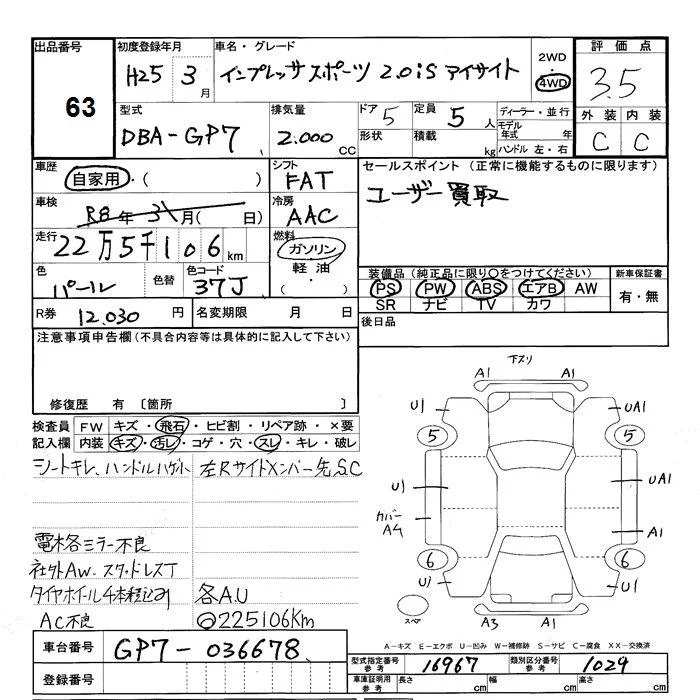 出品番号
63
初度登録年月
H25 3月
車名・グレード
インプレッサスポーツ 2.0iS アイサイト
2WD
・
4WD
評価点
3.5
外装 内装
C C
型式
DBA-GP7
排気量
2.000 CC
ドア 5
形状
定員 5人
積載 kg
ディーラー・並行
モデル年式 年
ハンドル 左・右
車歴
自家用・( )
シフト
FAT
セールスポイント (正常に機能するものに限ります)
ユーザー買取
車検
R8年3月( 日)
冷房
AAC
走行
22万5千106km
燃料
ガソリン
軽油
・( )
色
パール
色替
色コード
37J
装備品(純正品に限り○をつけてください)
PS PW ABS エアB AW
SR ナビ TV カワ
新車保証書
有・無
R券 12.030円
名変期限 月 日
後日品
注意事項申告欄(不具合内容等は具体的に記入して下さい)
修復歴 有 〔箇所 〕
検査員記入欄
FW キズ・飛石・ヒビ割・リペア跡・×要
内装 キズ・汚レ・コゲ・穴・スレ・キレ・破レ
シートキレ、ハンドルハゲ
左Rサイドメンバー先S.C
電格ミラー不良
社外AW、スタッドレスT
タイヤホイール4本積込み
各A.U
AC不良
225106Km
下スリ
A1 A1
U1 UA1
5 5
U1 UA1
カバーA4 A1
6 6
U1 U1
スペア
A3 A1
A-キズ E-エクボ U-凹み W-補修跡 S-サビ C-腐食 XX-交換済
車台番号
GP7-036678
登録番号
型式指定番号 参考 16967
類別区分番号 参考 1029
車庫証明用 参考 長さ cm 幅 cm 高さ cm